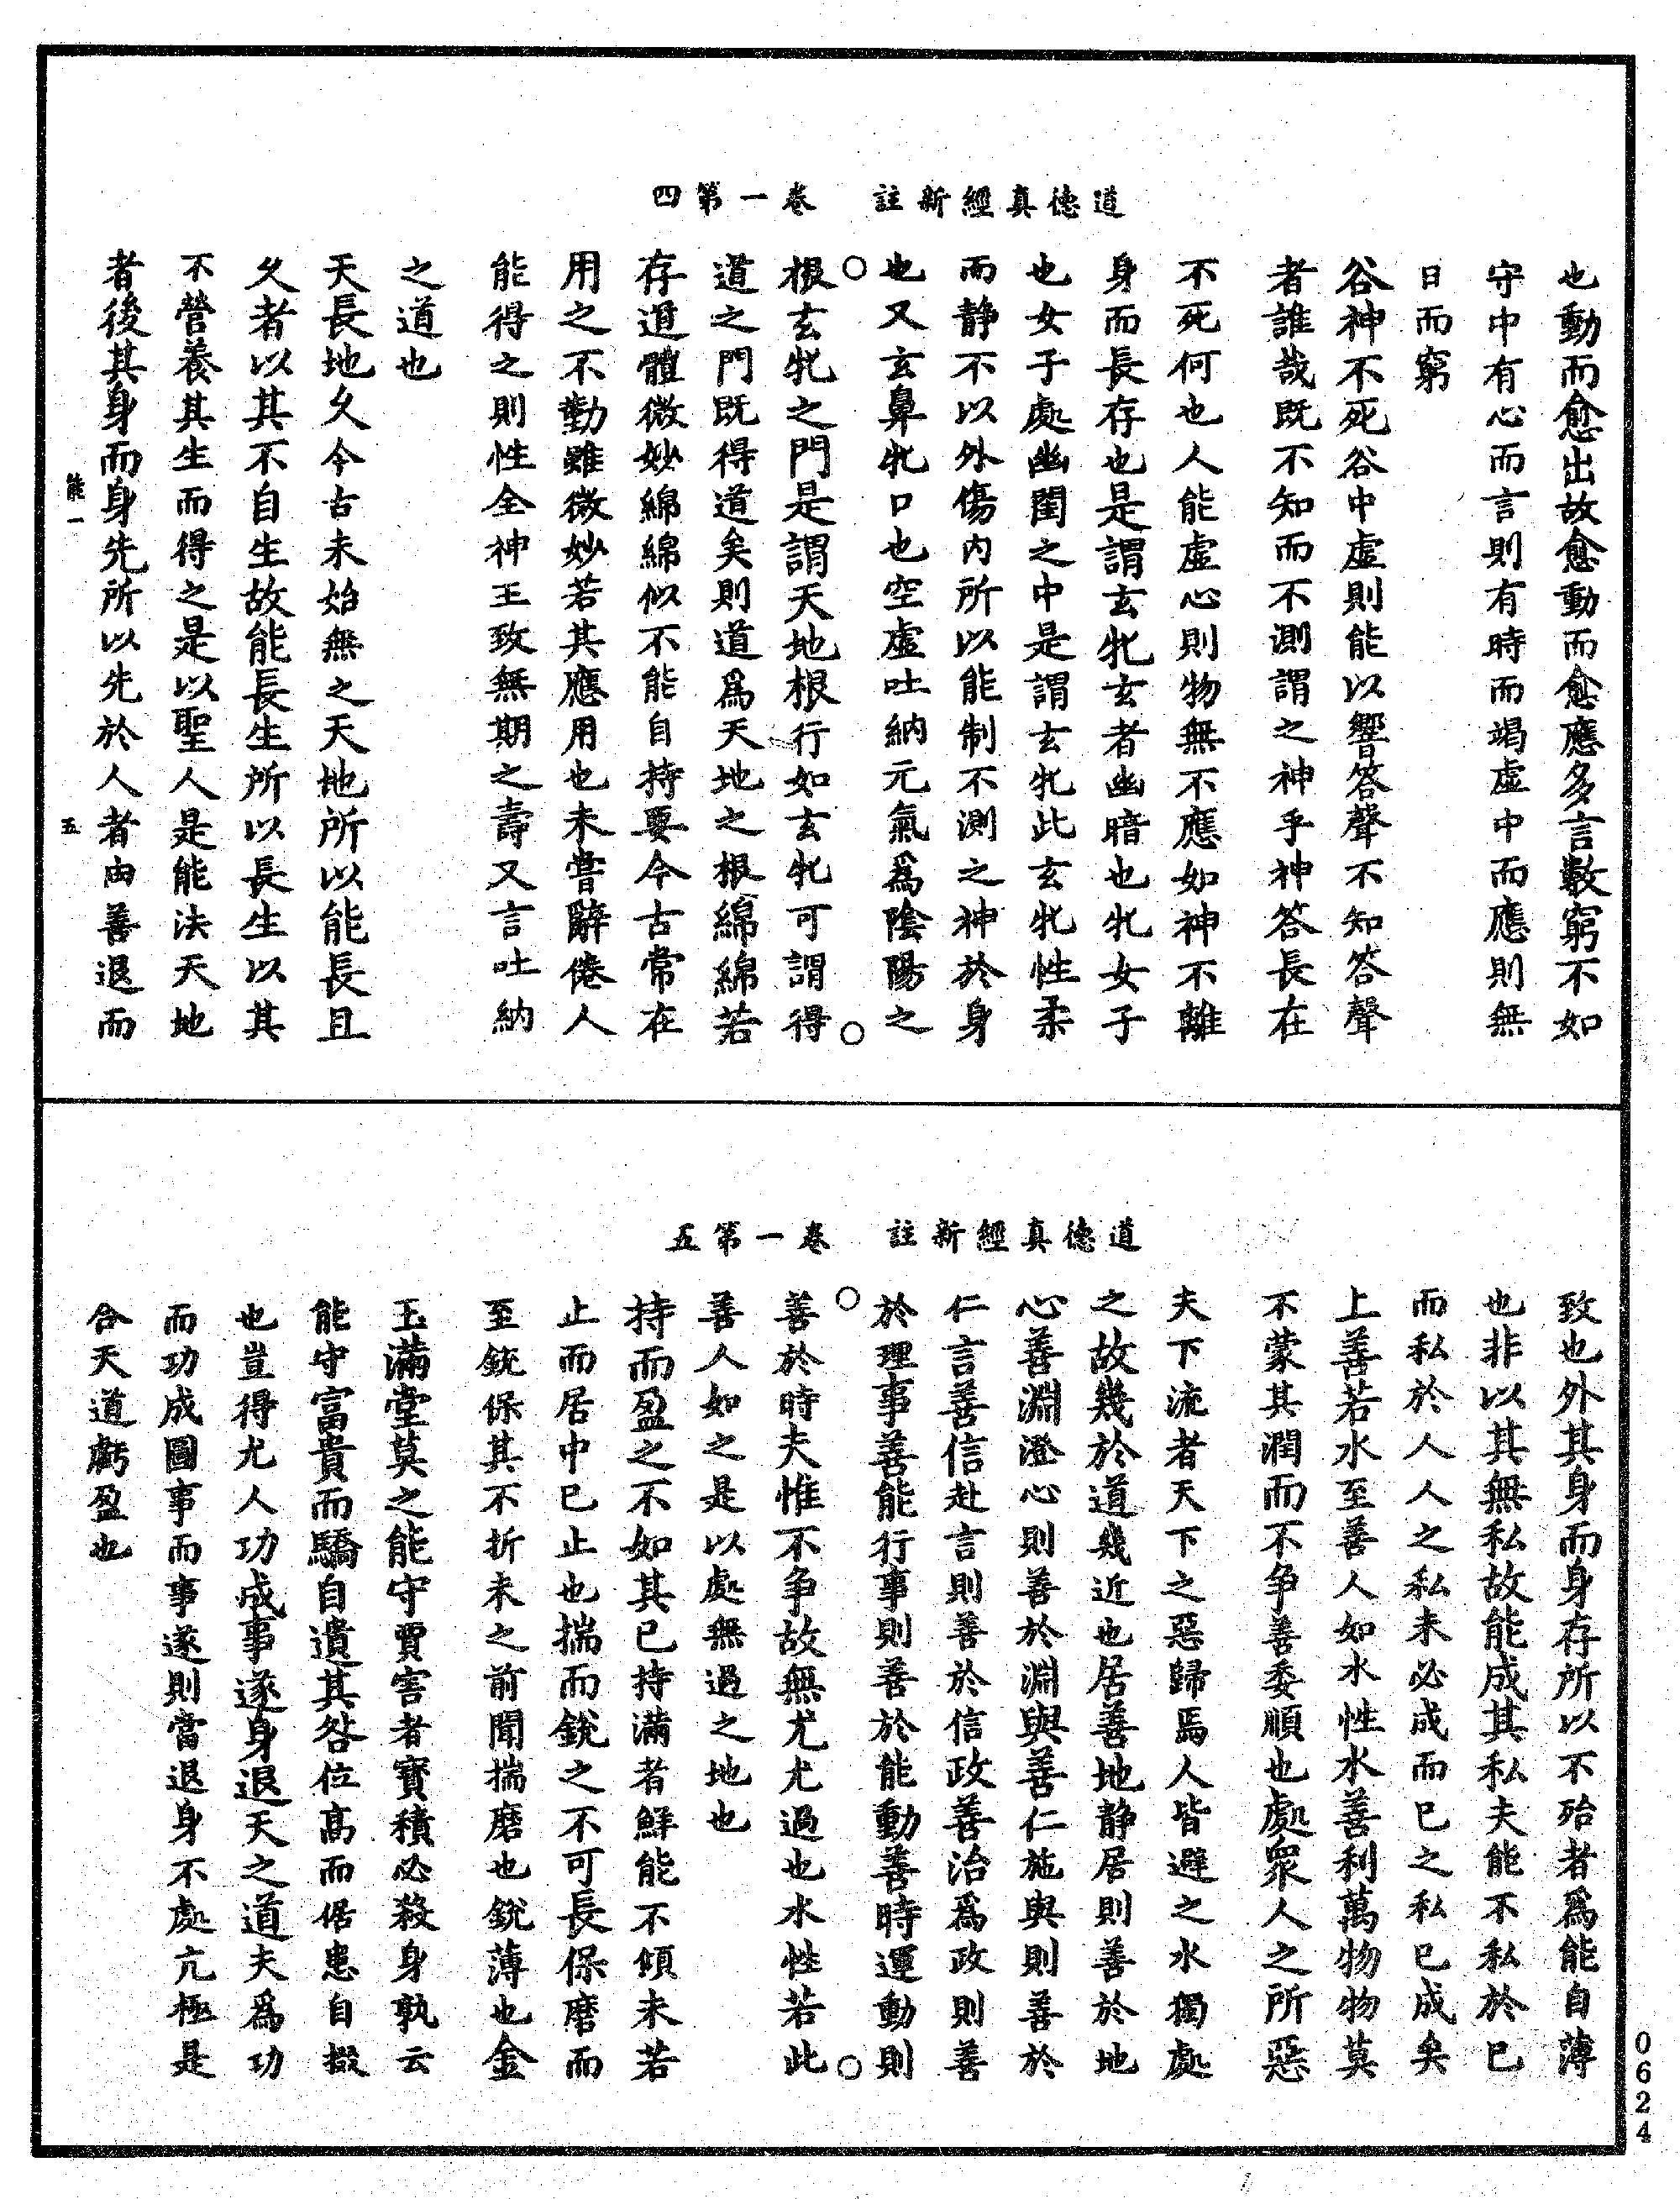 道德真經新註　卷一第四
也動而愈出故愈動而愈應多言數窮不如
守中有心而言則有時而竭虛中而應則無
日而窮
谷神不死谷中虛則能以響答聲不知答聲
者誰哉既不知而不測謂之神乎神答長在
不死何也人能虛心則物無不應如神不離
身而長存也是謂玄牝玄者幽暗也牝女子
也女子處幽閨之中是謂玄牝此玄牝性柔
而静不以外傷內所以能制不測之神於身
也又玄鼻牝口也空虛吐納元氣爲陰陽之
根玄牝之門是謂天地根行如玄牝可謂得
道之門既得道矣則道爲天地之根綿綿若
存道體微妙綿綿似不能自持要今古常在
用之不勤雖微妙若其應用也未嘗辭倦人
能得之則性全神王致無期之壽又言吐納
之道也
天長地久今古未始無之天地所以能長且
久者以其不自生故能長生所以長生以其
不營養其生而得之是以聖人是能法天地
者後其身而身先所以先於人者由善退而
能一
五
道德真經新註　卷一第五
致也外其身而身存所以不殆者爲能自薄
也非以其無私故能成其私夫能不私於已
而私於人人之私未必成而已之私已成矣
上善若水至善人如水性水善利萬物物莫
不蒙其潤而不争善委順也處衆人之所惡
夫下流者天下之惡歸焉人皆避之水獨處
之故幾於道幾近也居善地静居則善於地
心善淵澄心則善於淵與善仁施與則善於
仁言善信赴言則善於信政善治爲政則善
於理事善能行事則善於能動善時運動則
善於時夫惟不争故無尤尤過也水性若此
善人如之是以處無過之地也
持而盈之不如其已持滿者鮮能不傾未若
止而居中已止也揣而銳之不可長保磨而
至銳保其不折未之前聞揣磨也銳薄也金
玉滿堂莫之能守賈害者寳積必殺身孰云
能守富貴而驕自遺其咎位高而倨患自掇
也豈得尤人功成事遂身退天之道夫爲功
而功成圖事而事遂則當退身不處亢極是
合天道虧盈也
0624